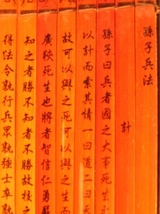 孫子兵法
計
孫子曰兵者國之大事死生
以計而索其情一曰道二曰天
故可以與之死可以與之生而
廣狹死生也將者智信仁勇嚴
知之者勝不知者不勝故校之
得法令執行兵眾孰強士卒孰